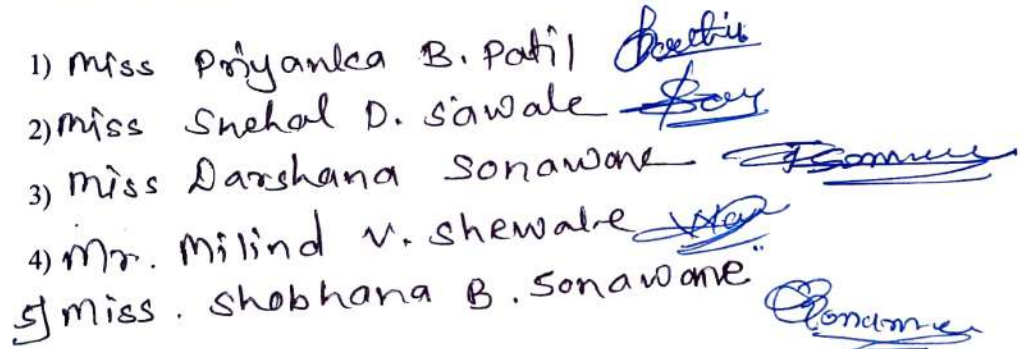 1) Miss Priyanka B. Patil
2) Miss Snehal D. Sawale
3) Miss Darshana Sonawane
4) Mr. Milind V. Shewale
5) Miss. Shobhana B. Sonawane